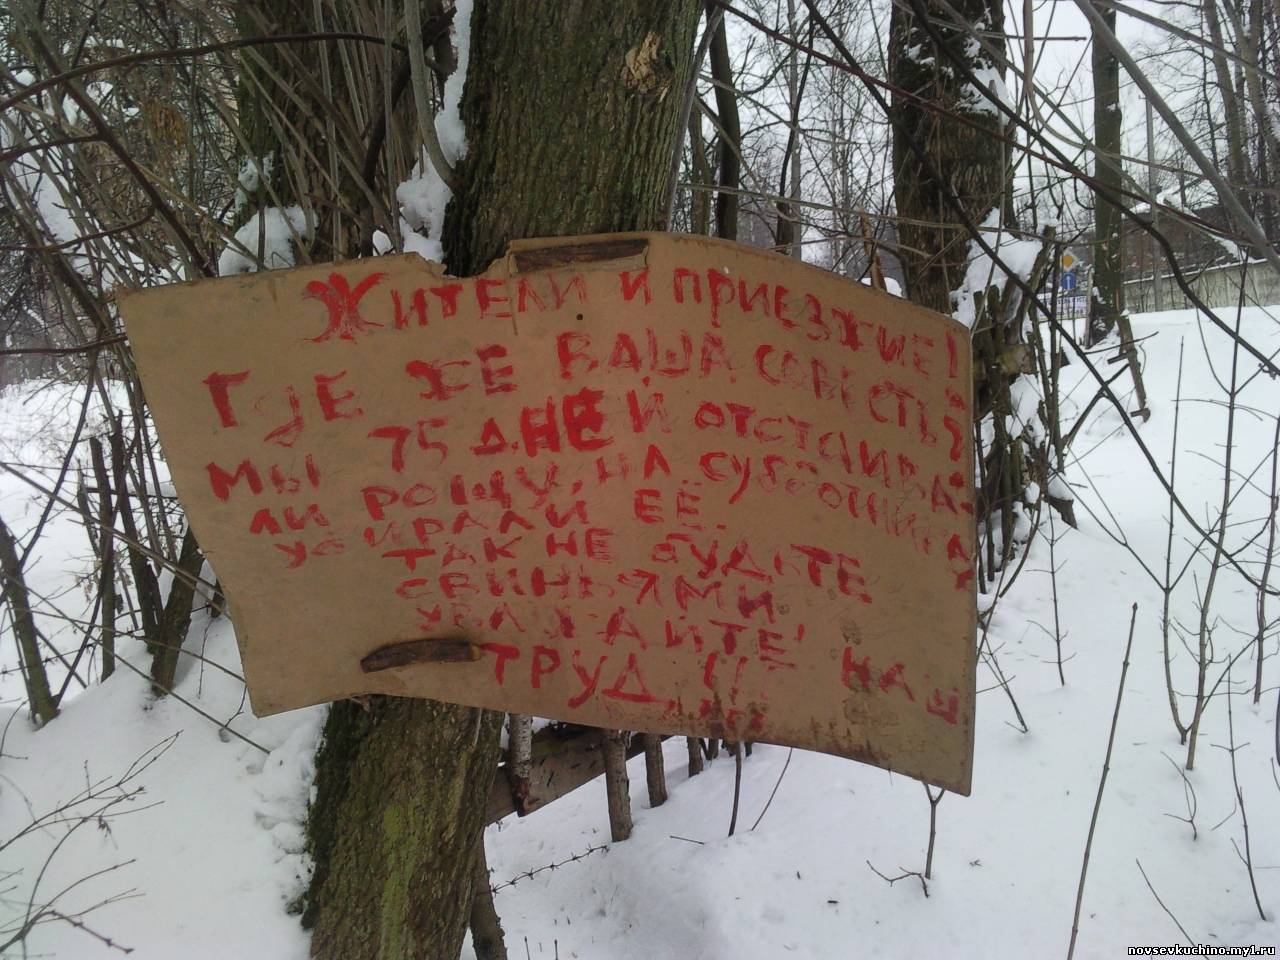 Жители и приезжие!
Где же ваша совесть?
Мы 75 дней отстаива-
ли рощу, на субботниках
убирали её.
Так не будьте
свиньями
уважайте!
наш
труд!!!
novsevkuchino.my1.ru